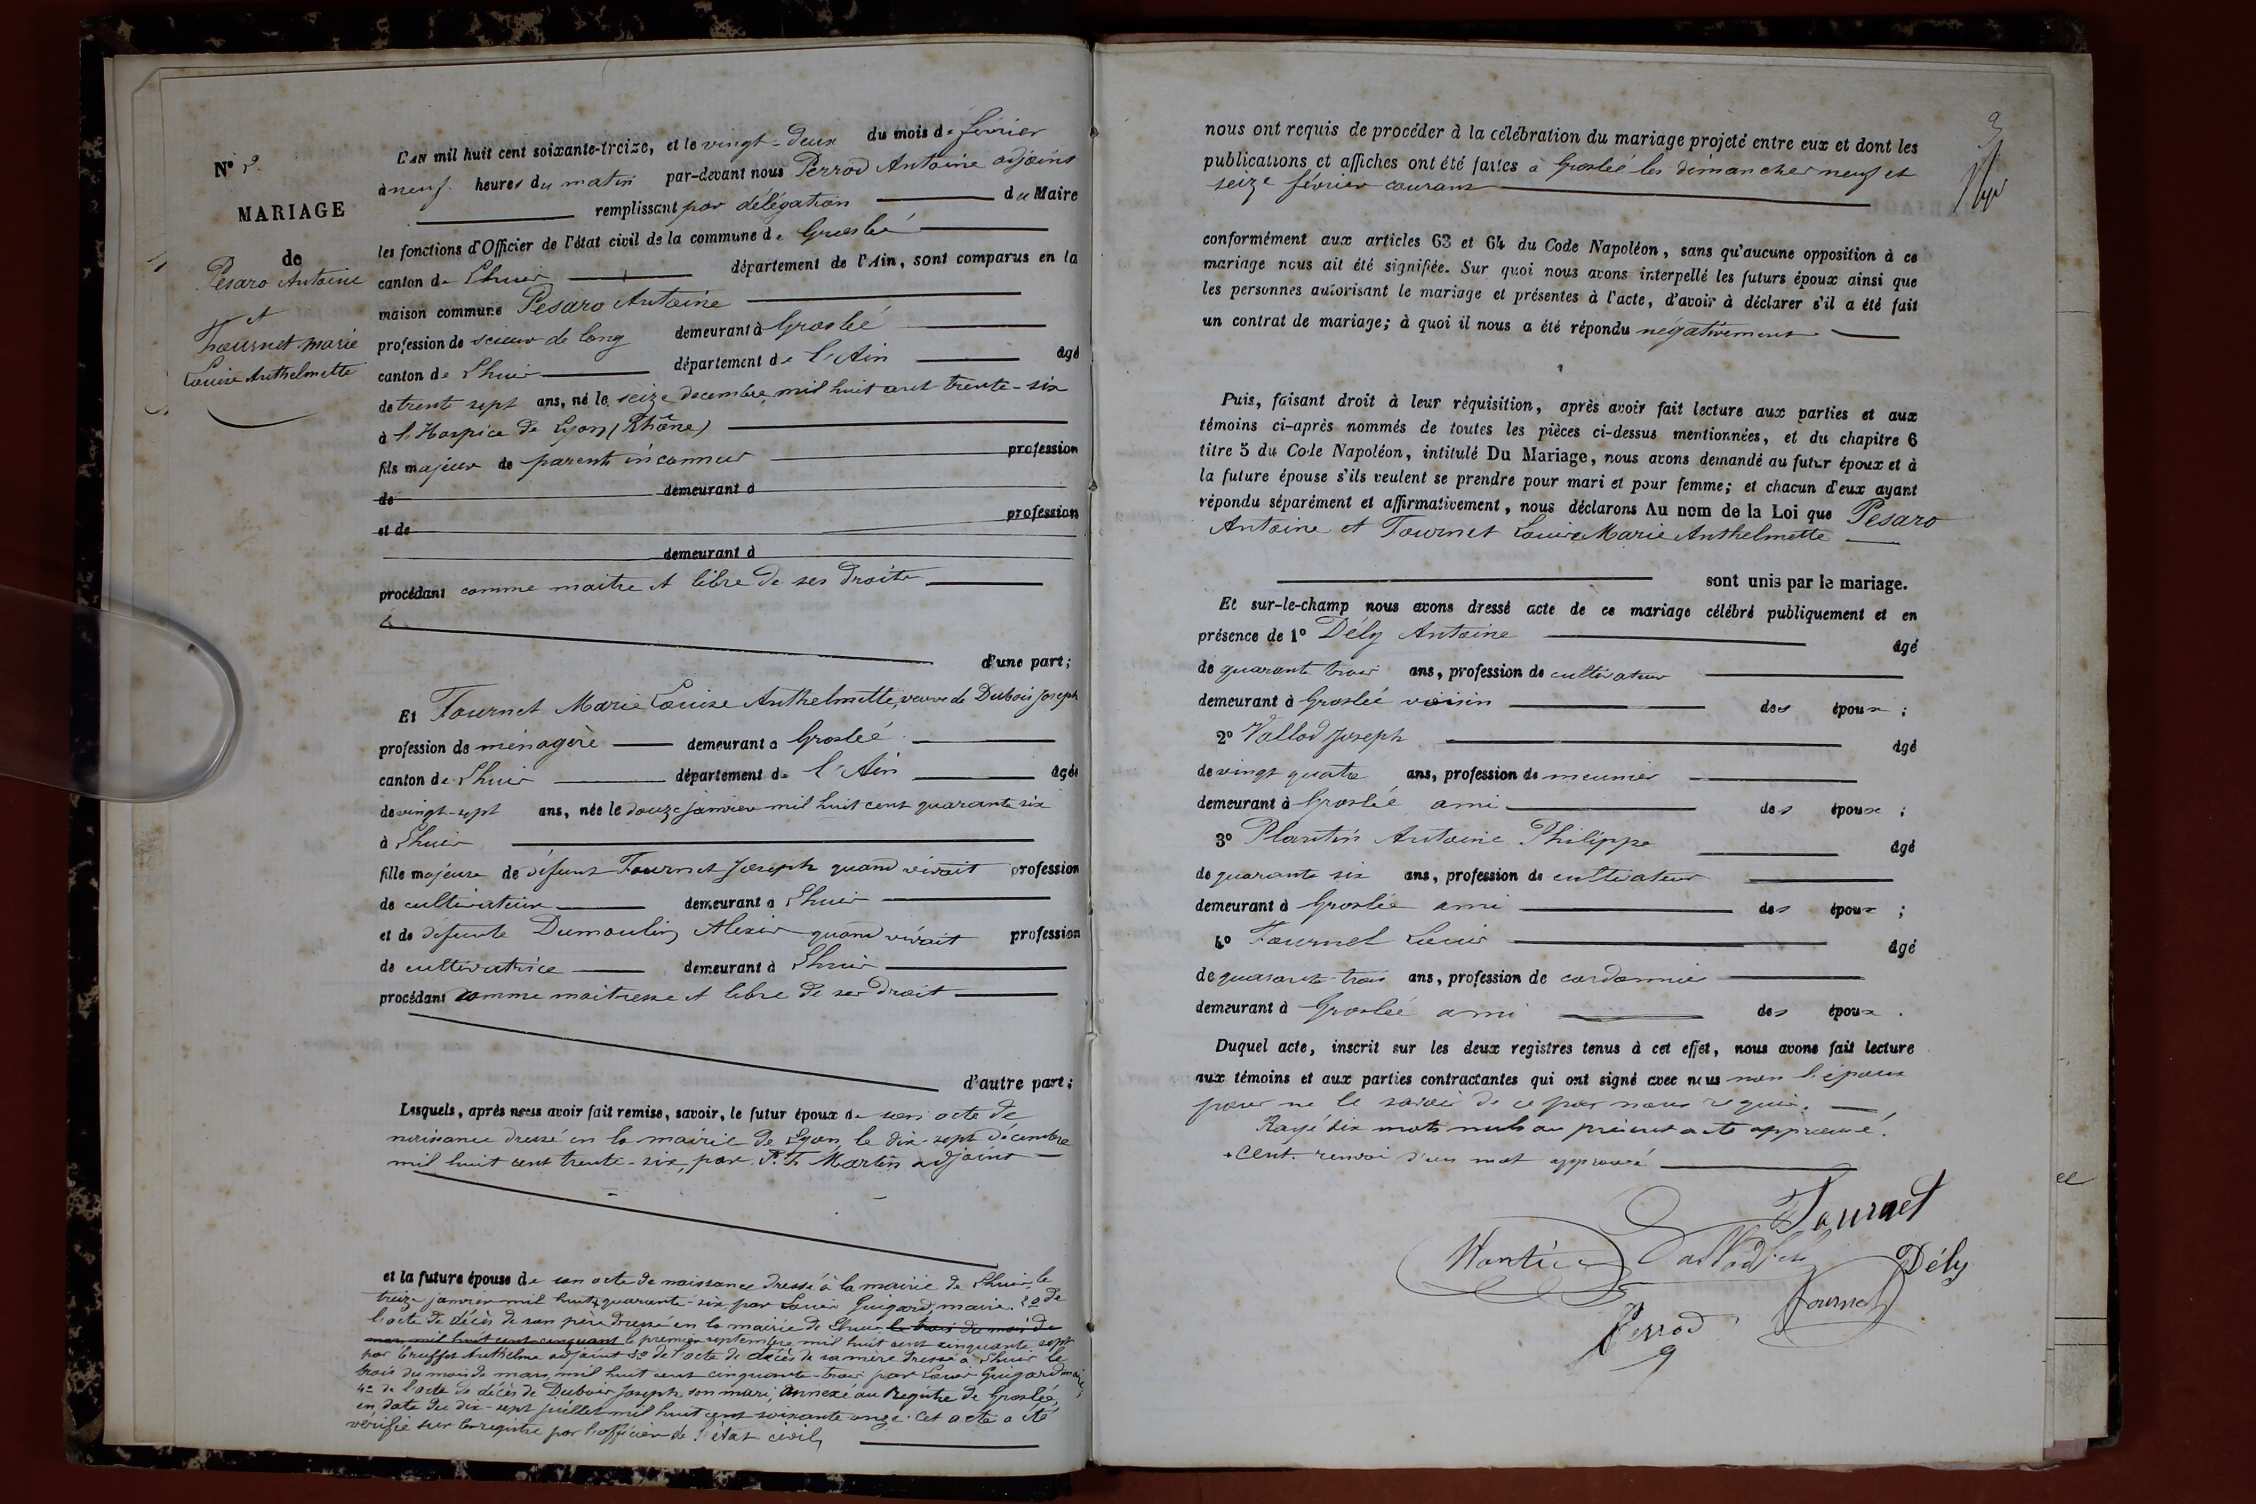 N° 2.
MARIAGE
de
Pesaro Antoine
et
Fournet marie
Louise Anthelmette
L'AN mil huit cent soixante-treize, et le vingt-deux du mois de février
à neuf heures du matin par-devant nous Perrod Antoine adjoint
remplissant par délégation du Maire
les fonctions d'Officier de l'état civil de la commune de Groslée
canton de Lhuis département de l'Ain, sont comparus en la
maison commune Pesaro Antoine
profession de scieur de long demeurant à Groslée
canton de Lhuis département de l'Ain âgé
de trente sept ans, né le seize decembre mil huit cent trente-six
à l'Hospice de Lyon (Rhône)
fils majeur de parents inconnus profession
de demeurant à
et de profession
demeurant à
procédant comme maitre et libre de ses droits
d'une part;
Et Fournet Marie Louise Anthelmette, veuve de Dubois Joseph
profession de ménagère demeurant à Groslée
canton de Lhuis département de l'Ain âgée
de vingt-sept ans, née le douze janvier mil huit cent quarante six
à Lhuis
fille majeure de défunt Fournet Joseph quand vivait profession
de cultivateur demeurant à Lhuis
et de défunte Dumoulin Alexis quand vivait profession
de cultivatrice demeurant à Lhuis
procédant comme maitresse et libre de ses droit
d'autre part;
Lesquels, après nous avoir fait remise, savoir, le futur époux de son acte de
naissance dressé en la mairie de Lyon le dix-sept décembre
mil huit cent trente-six, par Martin adjoint
et la future épouse de son acte de naissance dressé à la mairie de Lhuis, le
treize janvier mil huit + quarante-six par Louis Guigard, maire. 2° de
l'acte de décès de son père dressé en la mairie de Lhuis le trois du mois de
mars mil huit cent cinquant le premier septembre mil huit cent cinquante sept
par Truffet Anthelme adjoint 3° de l'acte de décès de sa mère dressé à Lhuis le
trois du mois de mars, mil huit cent cinquante-trois par Louis Guigard maire,
4° de l'acte de décès de Dubois Joseph son mari, annexé au Registre de Groslée,
en date du dix-sept juillet mil huit cent soixante onze. Cet acte a été
vérifié sur le registre par l'officier de l'état civil,
nous ont requis de procéder à la célébration du mariage projeté entre eux et dont les
publications et affiches ont été faites à Groslée les dimanches neuf et
seize février courant
conformément aux articles 63 et 64 du Code Napoléon, sans qu'aucune opposition à ce
mariage nous ait été signifiée. Sur quoi nous avons interpellé les futurs époux ainsi que
les personnes autorisant le mariage et présentes à l'acte, d'avoir à déclarer s'il a été fait
un contrat de mariage; à quoi il nous a été répondu négativement
Puis, faisant droit à leur réquisition, après avoir fait lecture aux parties et aux
témoins ci-après nommés de toutes les pièces ci-dessus mentionnées, et du chapitre 6
titre 5 du Code Napoléon, intitulé Du Mariage, nous avons demandé au futur époux et à
la future épouse s'ils veulent se prendre pour mari et pour femme; et chacun d'eux ayant
répondu séparément et affirmativement, nous déclarons Au nom de la Loi que Pesaro
Antoine et Fournet Louise Marie Anthelmette
sont unis par le mariage.
Et sur-le-champ nous avons dressé acte de ce mariage célébré publiquement et en
présence de 1° Dély Antoine âgé
de quarante trois ans, profession de cultivateur
demeurant à Groslée voisin des époux;
2° Vallod Joseph âgé
de vingt quatre ans, profession de meunier
demeurant à Groslée ami des époux;
3° Plantin Antoine Philippe âgé
de quarante six ans, profession de cultivateur
demeurant à Groslée ami des époux;
4° Fournet Louis âgé
de quarante-trois ans, profession de cordonnier
demeurant à Groslée ami des époux.
Duquel acte, inscrit sur les deux registres tenus à cet effet, nous avons fait lecture
aux témoins et aux parties contractantes qui ont signé avec nous non l'époux
pour ne le savoir de ce par nous requis.
Rayé dix mots nuls au présent acte approuvé.
+ cent. renvoi d'un mot approuvé
Fournet
Dély
Fournet
Perrod